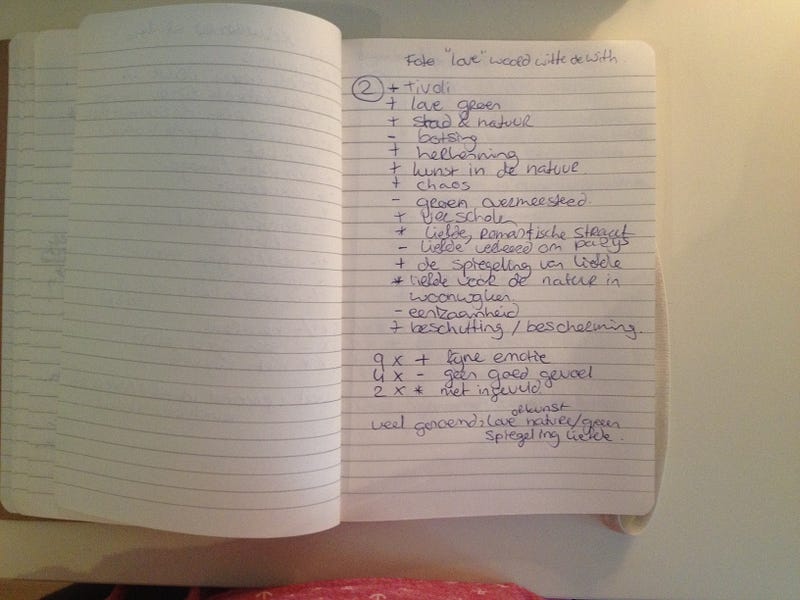 Foto "love" woord witte de with
② + tivoli
+ love green
+ stad & natuur
- botsing
+ herkenning
+ kunst in de natuur.
+ chaos
- groen overmeesterd.
+ verscholen
* liefde, romantische straat
- liefde om parijs
+ de spiegeling van liefde
* liefde voor de natuur in
woonwijken.
- eenzaamheid
+ beschutting / bescherming.
9 x + fijne emotie
4 x - geen goed gevoel
2 x * niet ingevuld.
of kunst
veel genoemd: love nature/green
spiegeling liefde.